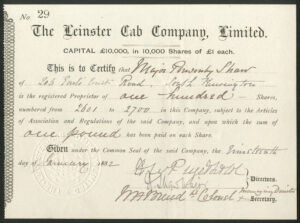 No. 29
The Leinster Cab Company, Limited.
CAPITAL £10,000, in 10,000 Shares of £1 each.
This is to Certify that Major Ponsonby Shaw
of 203 Earls Court Road, South Kensington
is the registered Proprietor of one hundred Shares,
numbered from 2601 to 2700 in this Company, subject to the Articles
of Association and Regulations of the said Company, and upon which the sum of
one pound has been paid on each Share.
Given under the Common Seal of the said Company, the
day of January
Directors.
Lt Colonel Secretary.